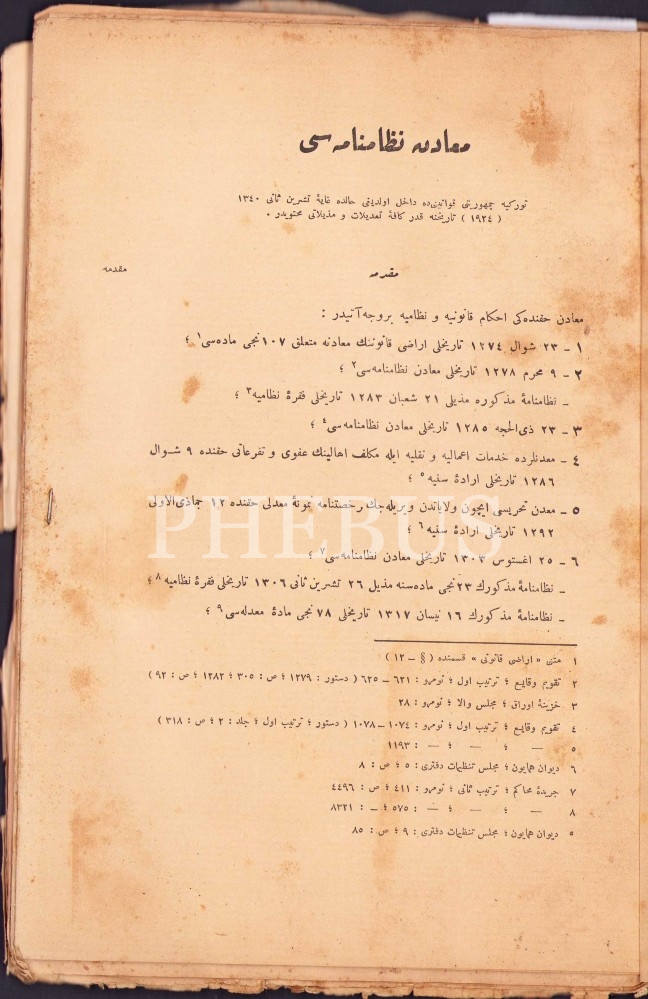 معادن نظامنامه‌سی
توركیه جمهوریتی قوانینی‌ده داخل اولدیغی حالده غایهٔ تشرین ثانی ١٣٤٠
( ١٩٢٤ ) تاریخنه قدر كافهٔ تعدیلات و مذیلاتی محتویدر .
مقدمه
مقدمه
معادن حقنده‌كی احكام قانونیه و نظامیه بروجه آتیدر :
١ – ٢٣ شوال ١٢٧٤ تاریخلی اراضی قانوننك معادنه متعلق ١٠٧نجی ماده‌سی ١ ؛
٢ – ٩ محرم ١٢٧٨ تاریخلی معادن نظامنامه‌سی ٢ ؛
– نظامنامهٔ مذكوره مذیلی ٢١ شعبان ١٢٨٣ تاریخلی فقرهٔ نظامیه ٣ ؛
٣ – ٢٣ ذی‌الحجه ١٢٨٥ تاریخلی معادن نظامنامه‌سی ٤ ؛
٤ – معدنلرده خدمات اعمالیه و نقلیه ایله مكلف اهالینك عفوی و تفرعاتی حقنده ٩ شوال
١٢٨٦ تاریخلی ارادهٔ سنیه ٥ ؛
٥ – معدن تحریسی ایچون ولایاتدن ویریله‌جك رخصتنامه نمونهٔ معدلی حقنده ١٢ جماذی‌الاولی
١٢٩٢ تاریخلی ارادهٔ سنیه ٦ ؛
٦ – ٢٥ اغستوس ١٣٠٣ تاریخلی معادن نظامنامه‌سی ٧ ؛
– نظامنامهٔ مذكورك ٢٣نجی ماده‌سنه مذیل ٢٦ تشرین ثانی ١٣٠٦ تاریخلی فقرهٔ نظامیه ٨ ؛
– نظامنامهٔ مذكورك ١٦ نیسان ١٣١٧ تاریخلی ٧٨ نجی مادهٔ معدله‌سی ٩ ؛
١ متنی « اراضی قانونی » قسمنده ( § – ١٢ )
٢ تقویم وقایع ؛ ترتیب اول ؛ نومرو : ٦٢١ – ٦٢٥ ( دستور : ١٢٧٩ ؛ ص : ٣٠٥ ؛ ١٢٨٢ ؛ ص : ٩٢ )
٣ خزینهٔ اوراق ؛ مجلس والا ؛ نومرو : ٢٨
٤ تقویم وقایع ؛ ترتیب اول ؛ نومرو : ١٠٧٤ – ١٠٧٨ ( دستور ؛ ترتیب اول ؛ جلد : ٢ ؛ ص : ٣١٨ )
٥ — ؛ — ؛ — : ١١٩٣
٦ دیوان همایون ؛ مجلس تنظیمات دفتری : ٥ ؛ ص : ٨
٧ جریدهٔ محاكم ؛ ترتیب ثانی ؛ نومرو : ٤١١ ؛ ص : ٤٤٩٦
٨ — ؛ — ؛ — : ٥٧٥ ؛ – : ٨٣٢١
٥ دیوان همایون ؛ مجلس تنظیمات دفتری : ٩ ؛ ص : ٨٥
PHEBUS